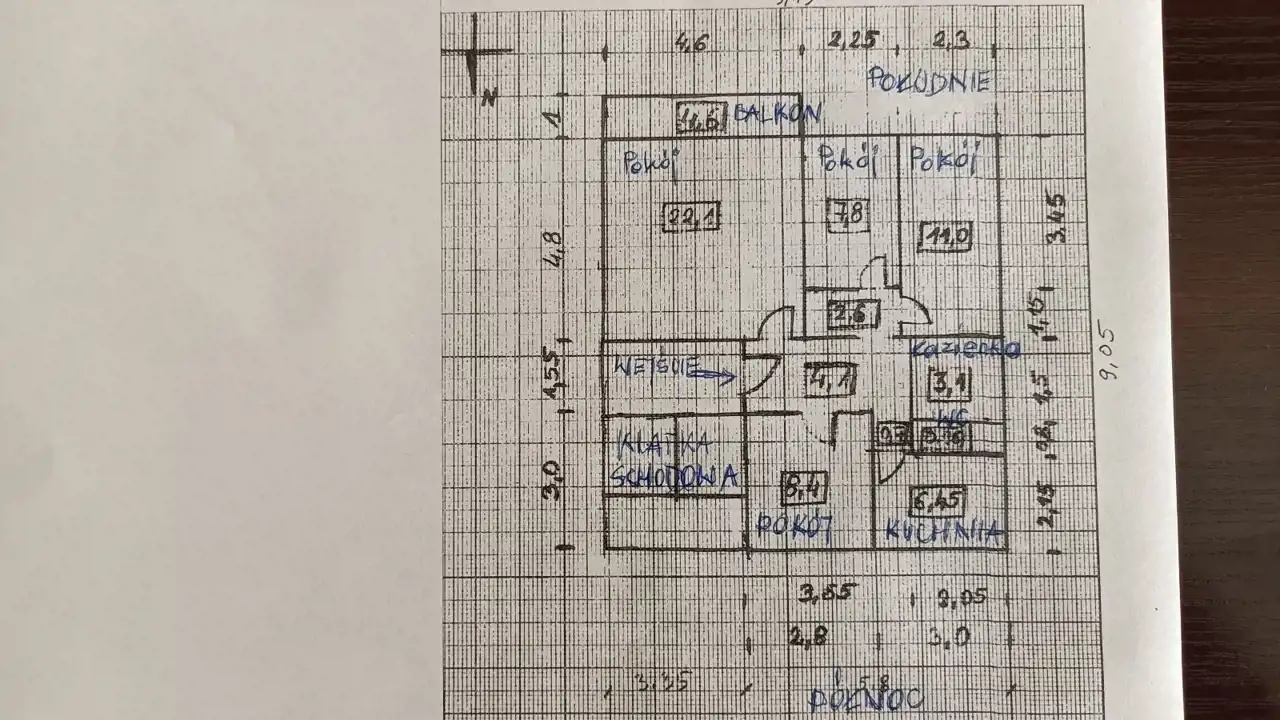 4,6 2,25 2,3
POŁUDNIE
N
1
4,6 BALKON
Pokój Pokój Pokój
22,1 7,8 11,0
3.45
4,8
2,6
1,15
9,05
Łazienka
WEJŚCIE
4,1
3,1
1,55
1,5
WC
KLATKA
SCHODOWA
0,8
3,0
8,4
6,45
2,15
POKÓJ
KUCHNIA
3,0
2,8
3.35
PÓŁNOC